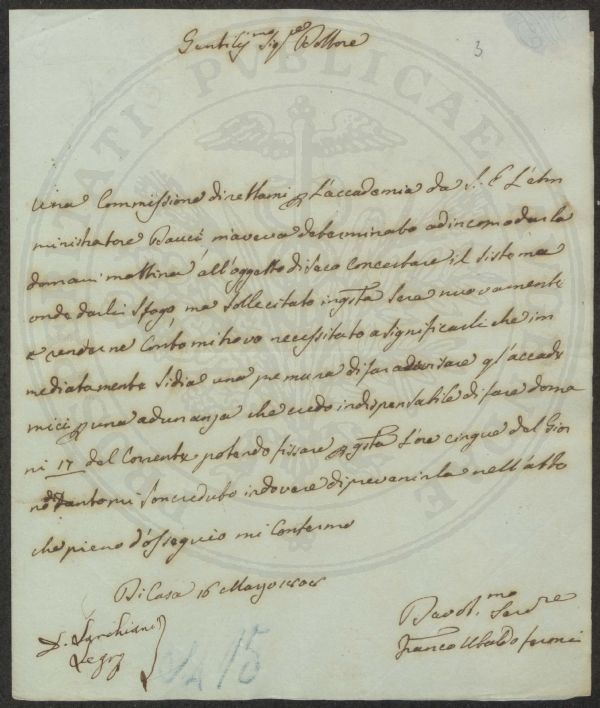 Gentiliss.mo Sig.re Dottore
3
Una Commissione direttami p l'accademia da S. E. L'am
ministratore Bauci m'aveva determinato ad incomodarla
domani mattina all'oggetto di seco concertare il sistema
onde darli sfogo, ma sollecitato in qsta sera nuovamente
a renderne Conto mi trovo necessitato a significarli che im
mediatamente si dia una premura di far avvisare gl'accade
mici p una adunanza che credo indispensabile di fare doma
ni 17 del Corrente potendo fissare p qsta l'ore cinque del Gior
no tanto mi son creduto in dovere di prevenirla nell'atto
che pieno d'ossequio mi confermo
Di Casa 16 Marzo 1808
Devot.mo Serv.re
Franco Ubaldo Feroni
S. Sarchiani
Segr.
15
PROSPERITATI PUBLICAE